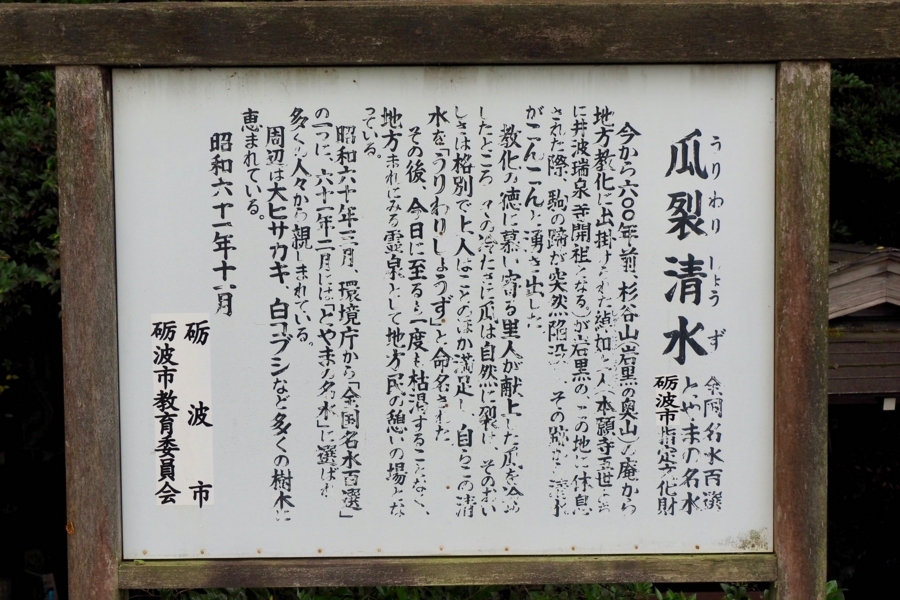 うりわりしょうず
瓜裂清水
全国名水百選
とやまの名水
砺波市指定文化財
今から六〇〇年前、杉谷山(岩黒の奥山)の庵から
地方教化に出掛けられた綽如上人(本願寺五世
に井波瑞泉寺開祖となる)が岩黒のこの地に休息
された際、駒の蹄が突然陥没 その跡 清水
がこんこんと湧き出した
教化の徳に慕い寄る里人が献上した瓜を冷め
したところ その冷たさに瓜は自然に裂け、そのおい
しさは格別で上人はことのほか満足し、自らこの清
水を「うりわりしょうず」と命名された
その後、今日に至るも一度も枯渇することなく、
地方まれにみる霊泉として地方民の憩いの場とな
っている。
昭和六十年三月、環境庁から「全国名水百選」
の一つに、六十一年二月には「とやまの名水」に選ばれ
多くの人々から親しまれている。
周辺は大ヒサカキ、白コブシなど多くの樹木に
恵まれている。
昭和六十一年十一月
砺波市
砺波市教育委員会